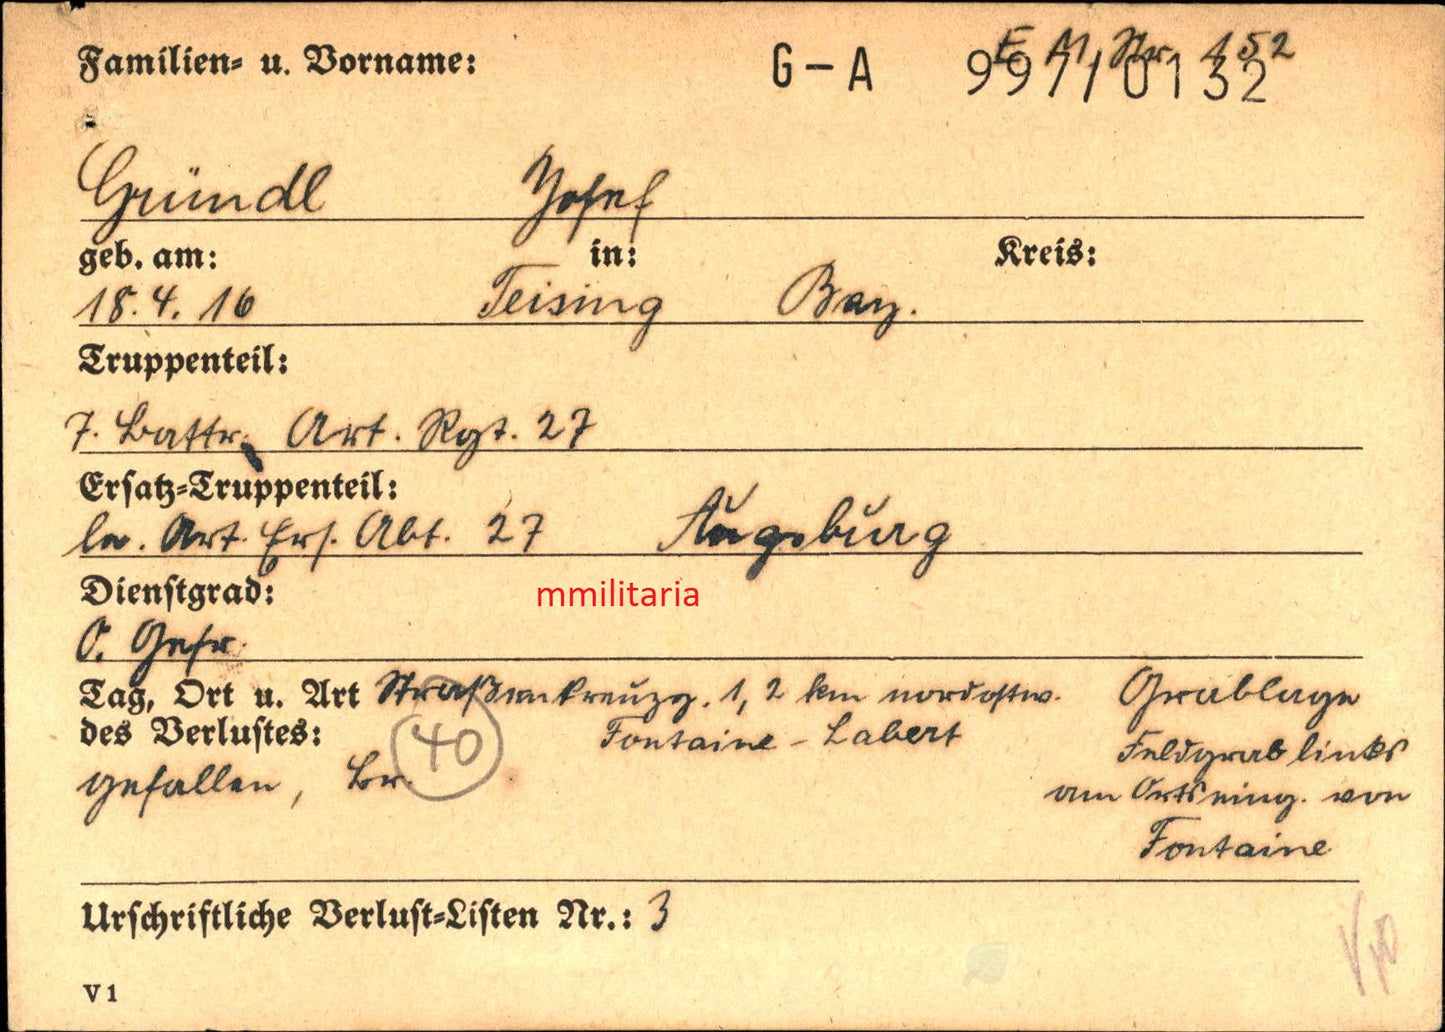 Familien- u. Vorname:
G-A 997/0132
E M Str 152
Gründl Josef
geb. am: in: Kreis:
18.4.16 Teising Bay.
Truppenteil:
7. Battr. Art. Rgt. 27
Ersatz-Truppenteil:
le. Art. Ers. Abt. 27 Augsburg
Dienstgrad:
O. Gefr.
Tag, Ort u. Art Straßenkreuzg. 1,2 km nordostw. Grablage
des Verlustes: 40 Fontaine - Labert Feldgrab links
gefallen, Br. am Ortseing. von
Fontaine
Urschriftliche Verlust-Listen Nr.: 3
V 1
mmilitaria